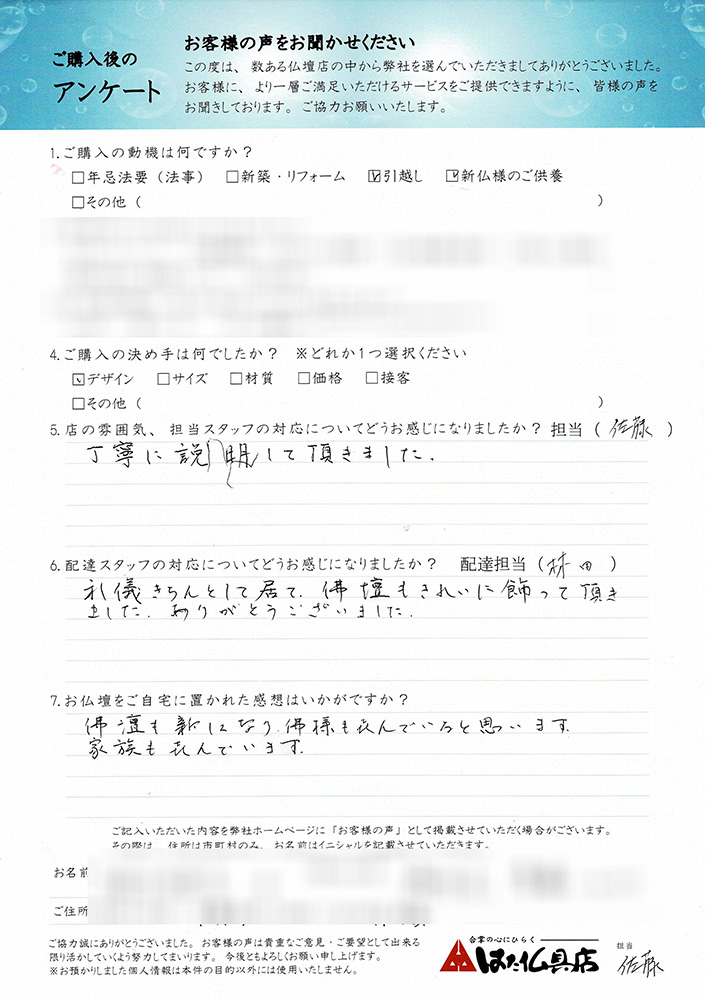 ご購入後の
アンケート
お客様の声をお聞かせください
この度は、数ある仏壇店の中から弊社を選んでいただきましてありがとうございました。
お客様に、より一層ご満足いただけるサービスをご提供できますように、皆様の声を
お聞きしております。ご協力お願いいたします。
1.ご購入の動機は何ですか？
□年忌法要（法事） □新築・リフォーム ☑引越し ☑新仏様のご供養
□その他（ ）
4.ご購入の決め手は何でしたか？ ※どれか1つ選択ください
☑デザイン □サイズ □材質 □価格 □接客
□その他（ ）
5.店の雰囲気、担当スタッフの対応についてどうお感じになりましたか？担当（佐藤）
丁寧に説明して頂きました.
6.配達スタッフの対応についてどうお感じになりましたか？ 配達担当（林田）
礼儀きちんとして居て、佛壇もきれいに飾って頂き
ました. ありがとうございました.
7.お仏壇をご自宅に置かれた感想はいかがですか？
佛壇も新になり、佛様も喜んでいると思います.
家族も喜んでいます.
ご記入いただいた内容を弊社ホームページに「お客様の声」として掲載させていただく場合がございます。
その際は、住所は市町村のみ、お名前はイニシャルを記載させていただきます。
お名前
ご住所
ご協力誠にありがとうございました。お客様の声は貴重なご意見・ご要望として出来る
限り活かしていくよう努力してまいります。今後ともよろしくお願い申し上げます。
※お預かりしました個人情報は本件の目的以外には使用いたしません。
合掌の心にひらく
はた仏具店
担当
佐藤